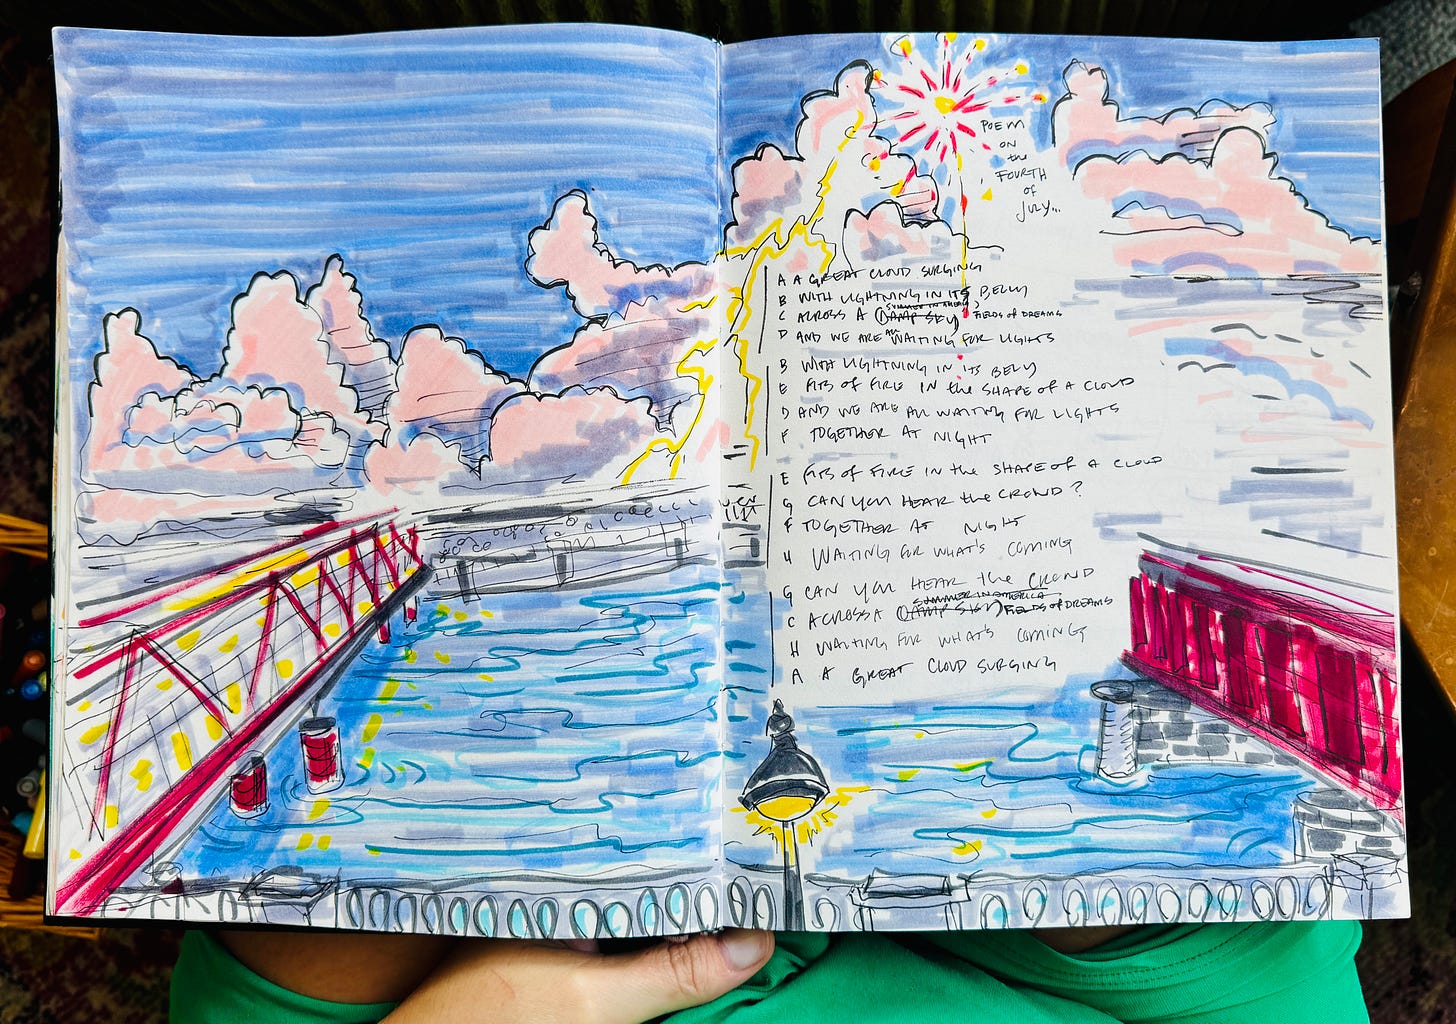 POEM
ON
the
FOURTH
of
JULY...
A A GREAT CLOUD SURGING
B WITH LIGHTNING IN ITS BELLY
SUMMER IN AMERICA,
C ACROSS A (DAMP SKY) FIELDS OF DREAMS
ALL
D AND WE ARE WAITING FOR LIGHTS
B WITH LIGHTNING IN ITS BELLY
E FITS OF FIRE IN the SHAPE OF A CLOUD
D AND WE ARE ALL WAITING FOR LIGHTS
F TOGETHER AT NIGHT
E FITS OF FIRE IN the SHAPE OF A CLOUD
G CAN YOU HEAR the CROWD?
F TOGETHER AT NIGHT
H WAITING FOR WHAT'S COMING
G CAN YOU HEAR the CROWD
SUMMER IN AMERICA
C ACROSS A (DAMP SKY) FIELDS OF DREAMS
H WAITING FOR WHAT'S COMING
A A GREAT CLOUD SURGING